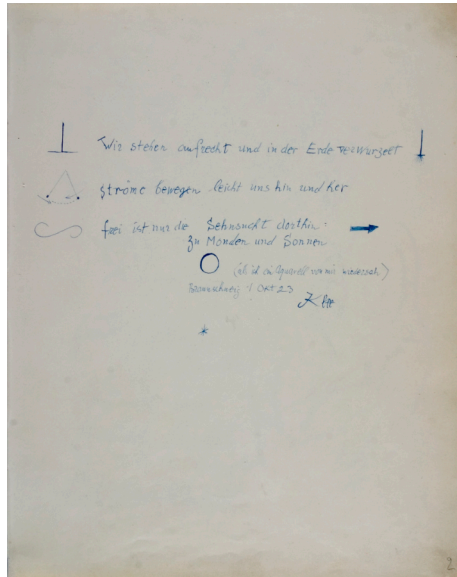 Wir stehen aufrecht und in der Erde verwurzelt
ströme bewegen leicht uns hin und her
frei ist nur de Sehnsucht dorthin:
zu Monden und Sonnen
(als ich ein Aquarell von mir wiedersah)
Braunschweig 1 Okt 23
Klee
2